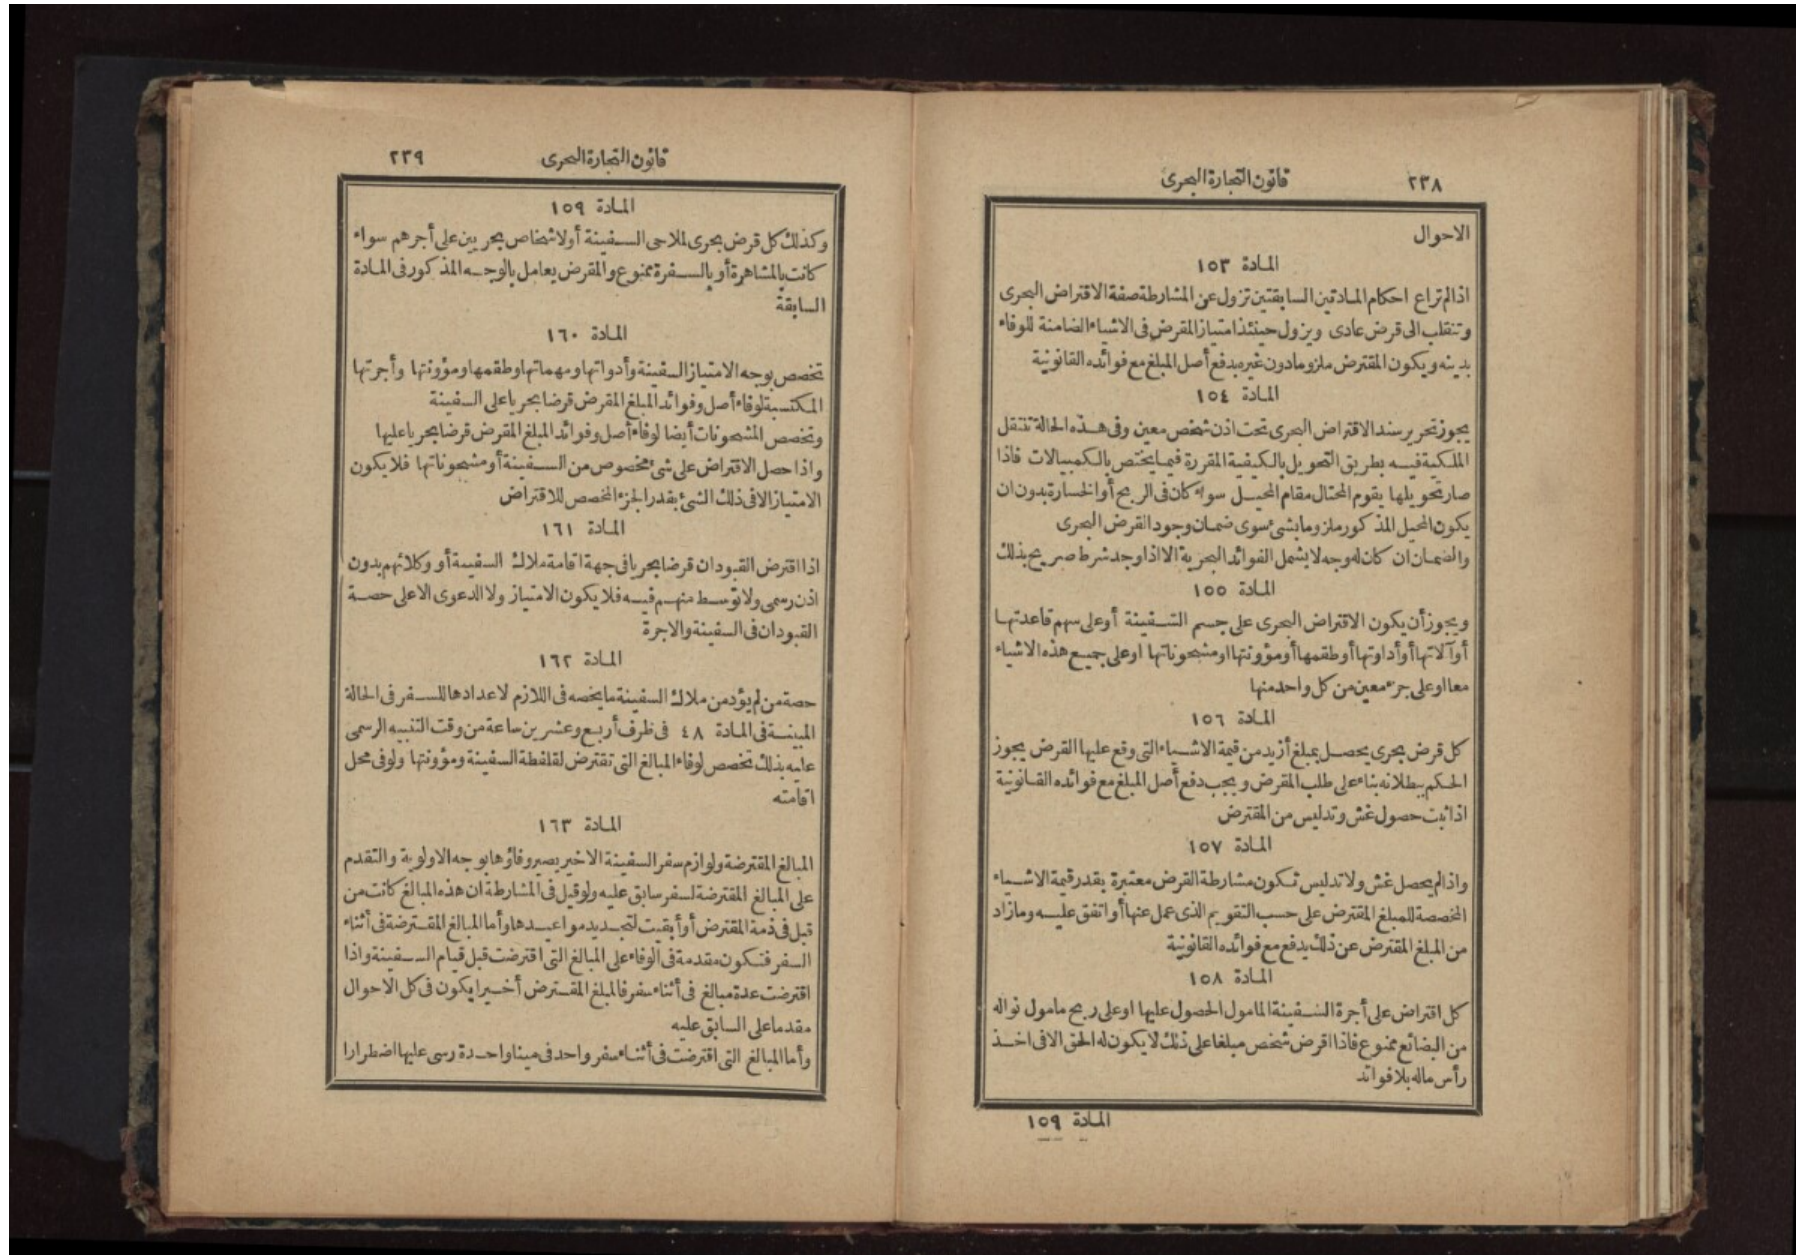 ٢٣٨
قانون التجارة البحرى
الاحوال
المادة ١٥٣
اذا لم تراع احكام المادتين السابقتين تزول عن المشارطة صفة الاقتراض البحرى
وتنقلب الى قرض عادى ويزول حينئذ امتياز المقرض فى الاشياء الضامنة للوفاء
بدينه ويكون المقترض ملزوما دون غيره بدفع أصل المبلغ مع فوائده القانونية
المادة ١٥٤
يجوز تحرير سند الاقتراض البحرى تحت اذن شخص معين وفى هذه الحالة تنتقل
الملكية فيه بطريق التحويل بالكيفية المقررة فيما يختص بالكمبيالات فاذا
صار تحويلها يقوم المحتال مقام المحيل سواء كان فى الربح أو الخسارة بدون ان
يكون المحيل المذكور ملزوما بشئ سوى ضمان وجود القرض البحرى
والضمان ان كان له وجه لا يشمل الفوائد البحرية الا اذا وجد شرط صريح بذلك
المادة ١٥٥
ويجوز أن يكون الاقتراض البحرى على جسم السفينة أو على سهم قاعدتها
أو آلاتها أو أداوتها أو طقمها أو مؤونتها او مشحوناتها او على جميع هذه الاشياء
معا او على جزء معين من كل واحد منها
المادة ١٥٦
كل قرض بحرى يحصل بمبلغ أزيد من قيمة الاشياء التى وقع عليها القرض يجوز
الحكم ببطلانه بناء على طلب المقرض ويجب دفع أصل المبلغ مع فوائده القانونية
اذا ثبت حصول غش وتدليس من المقترض
المادة ١٥٧
واذا لم يحصل غش ولا تدليس تكون مشارطة القرض معتبرة بقدر قيمة الاشياء
المخصصة للمبلغ المقترض على حسب التقويم الذى عمل عنها أو اتفق عليه وما زاد
من المبلغ المقترض عن ذلك يدفع مع فوائده القانونية
المادة ١٥٨
كل اقتراض على أجرة السفينة المامول الحصول عليها او على ربح مامول نواله
من البضائع ممنوع فاذا اقرض شخص مبلغا على ذلك لا يكون له الحق الا فى اخذ
رأس ماله بلا فوائد
المادة ١٥٩
قانون التجارة البحرى
٢٣٩
المادة ١٥٩
وكذلك كل قرض بحرى لملاحى السفينة أو لاشخاص بحريين على أجرهم سواء
كانت بالمشاهرة أو بالسفرة ممنوع والمقرض يعامل بالوجه المذكور فى المادة
السابقة
المادة ١٦٠
تخصص بوجه الامتياز السفينة وأدواتها ومهماتها وطقمها ومؤونتها وأجرتها
المكتسبة لوفاء أصل وفوائد المبلغ المقرض قرضا بحريا على السفينة
وتخصص المشحونات أيضا لوفاء أصل وفوائد المبلغ المقرض قرضا بحريا عليها
واذا حصل الاقتراض على شئ مخصوص من السفينة أو مشحوناتها فلا يكون
الامتياز الا فى ذلك الشئ بقدر الجزء المخصص للاقتراض
المادة ١٦١
اذا اقترض القبودان قرضا بحريا فى جهة اقامة ملاك السفينة أو وكلائهم بدون
اذن رسمى ولا توسط منهم فيه فلا يكون الامتياز ولا الدعوى الا على حصة
القبودان فى السفينة والاجرة
المادة ١٦٢
حصة من لم يؤد من ملاك السفينة ما يخصه فى اللازم لاعدادها للسفر فى الحالة
المبينة فى المادة ٤٨ فى ظرف أربع وعشرين ساعة من وقت التنبيه الرسمى
عليه بذلك تخصص لوفاء المبالغ التى تقترض لقلفطة السفينة ومؤونتها ولو فى محل
اقامته
المادة ١٦٣
المبالغ المقترضة ولوازم سفر السفينة الاخير يصير وفاؤها بوجه الاولوية والتقدم
على المبالغ المقترضة لسفر سابق عليه ولو قيل فى المشارطة ان هذه المبالغ كانت من
قبل فى ذمة المقترض أو أبقيت لتجديد مواعيدها وأما المبالغ المقترضة فى أثناء
السفر فتكون مقدمة فى الوفاء على المبالغ التى اقترضت قبل قيام السفينة واذا
اقترضت عدة مبالغ فى أثناء سفر فالمبلغ المقترض أخيرا يكون فى كل الاحوال
مقدما على السابق عليه
وأما المبالغ التى اقترضت فى أثناء سفر واحد فى مينا واحدة رسى عليها اضطرارا